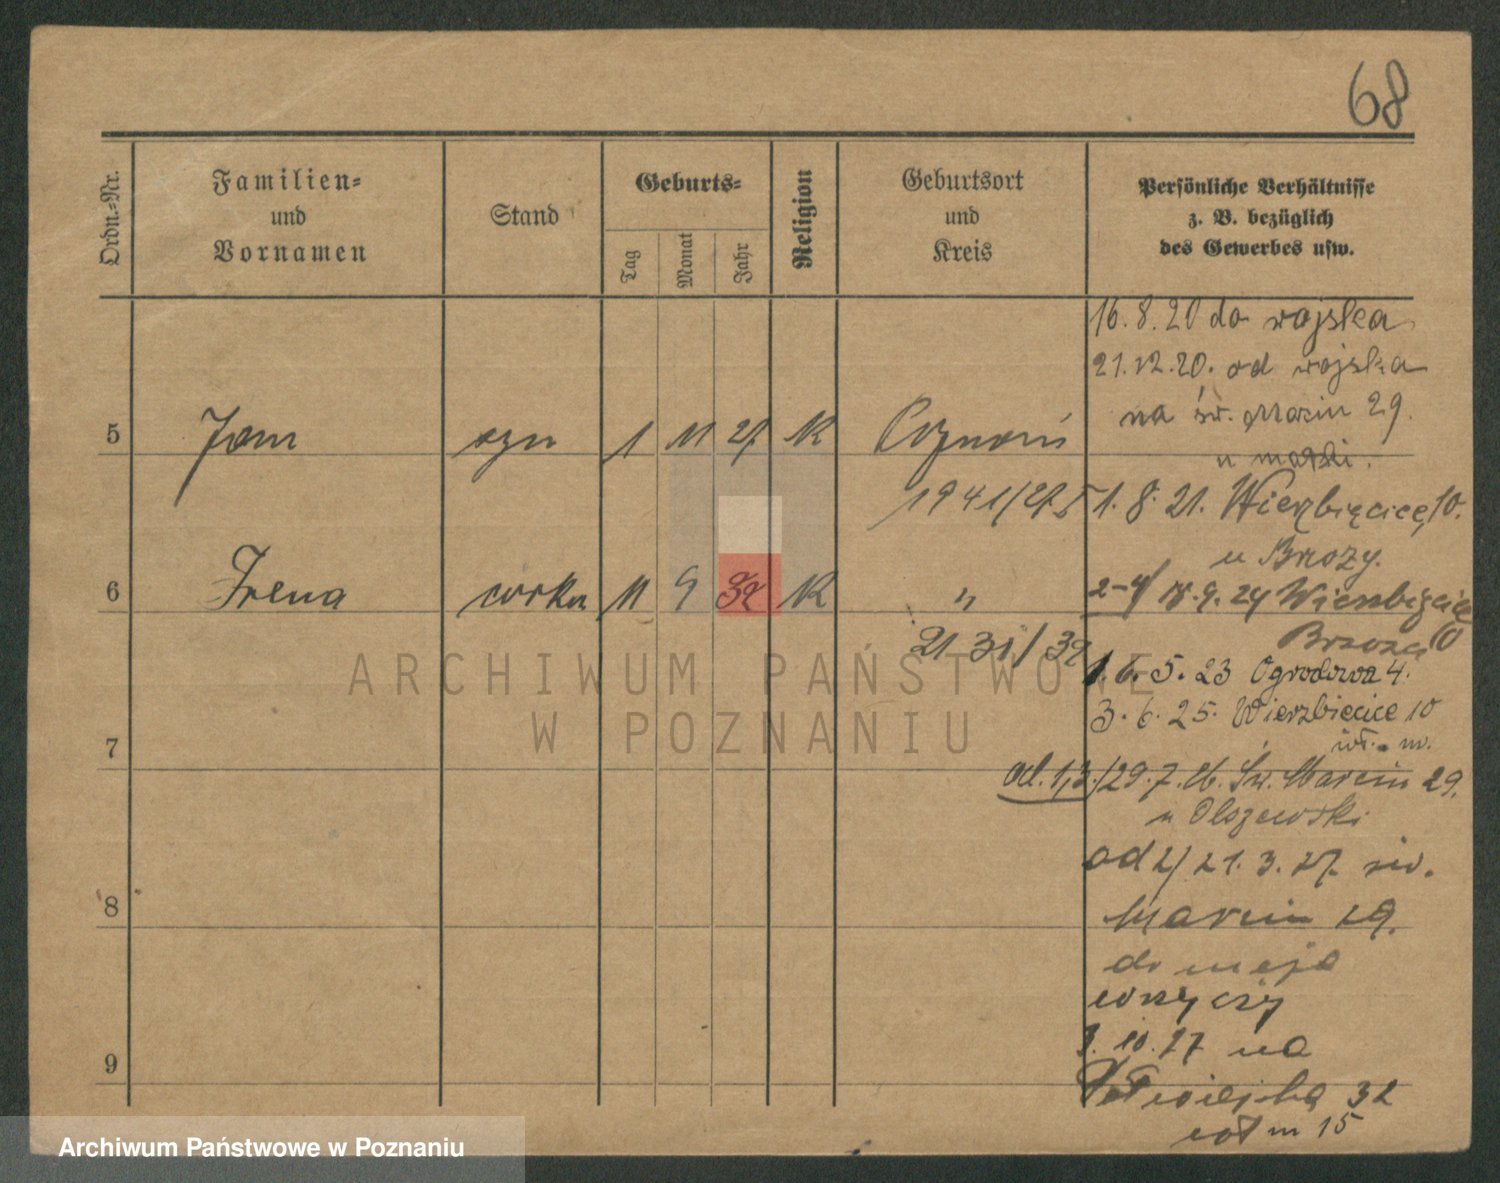 68
Ordn.-Nr.
Familien-
und
Vornamen
Stand
Geburts-
Tag
Monat
Jahr
Religion
Geburtsort
und
Kreis
Persönliche Verhältnisse
z. B. bezüglich
des Gewerbes usw.
16.8.20 do wojska
21.12.20. od wojska
na św. Marcin 29.
u matki.
5 Jan syn 1 11 27 K Poznań
1941/27
1.8.21. Wierzbięcice, 10.
u Brzozy.
6 Irena córka 11 9 32 K "
2131/32
2-4/ 9.24 Wierzbięcice 10
Brzoza
1.6.5.23 Ogrodowa 4.
3.6.25. Wierzbięcice 10
wł. m.
7
od. 1,3./29.7.26. Św. Marcin 29.
u Olszewski
od 2/ 21.3.27. św.
Marcin 29.
8
do
3.10.27 na
9
Półwiejską 32
wł m 15
ARCHIWUM PAŃSTWOWE
W POZNANIU
Archiwum Państwowe w Poznaniu